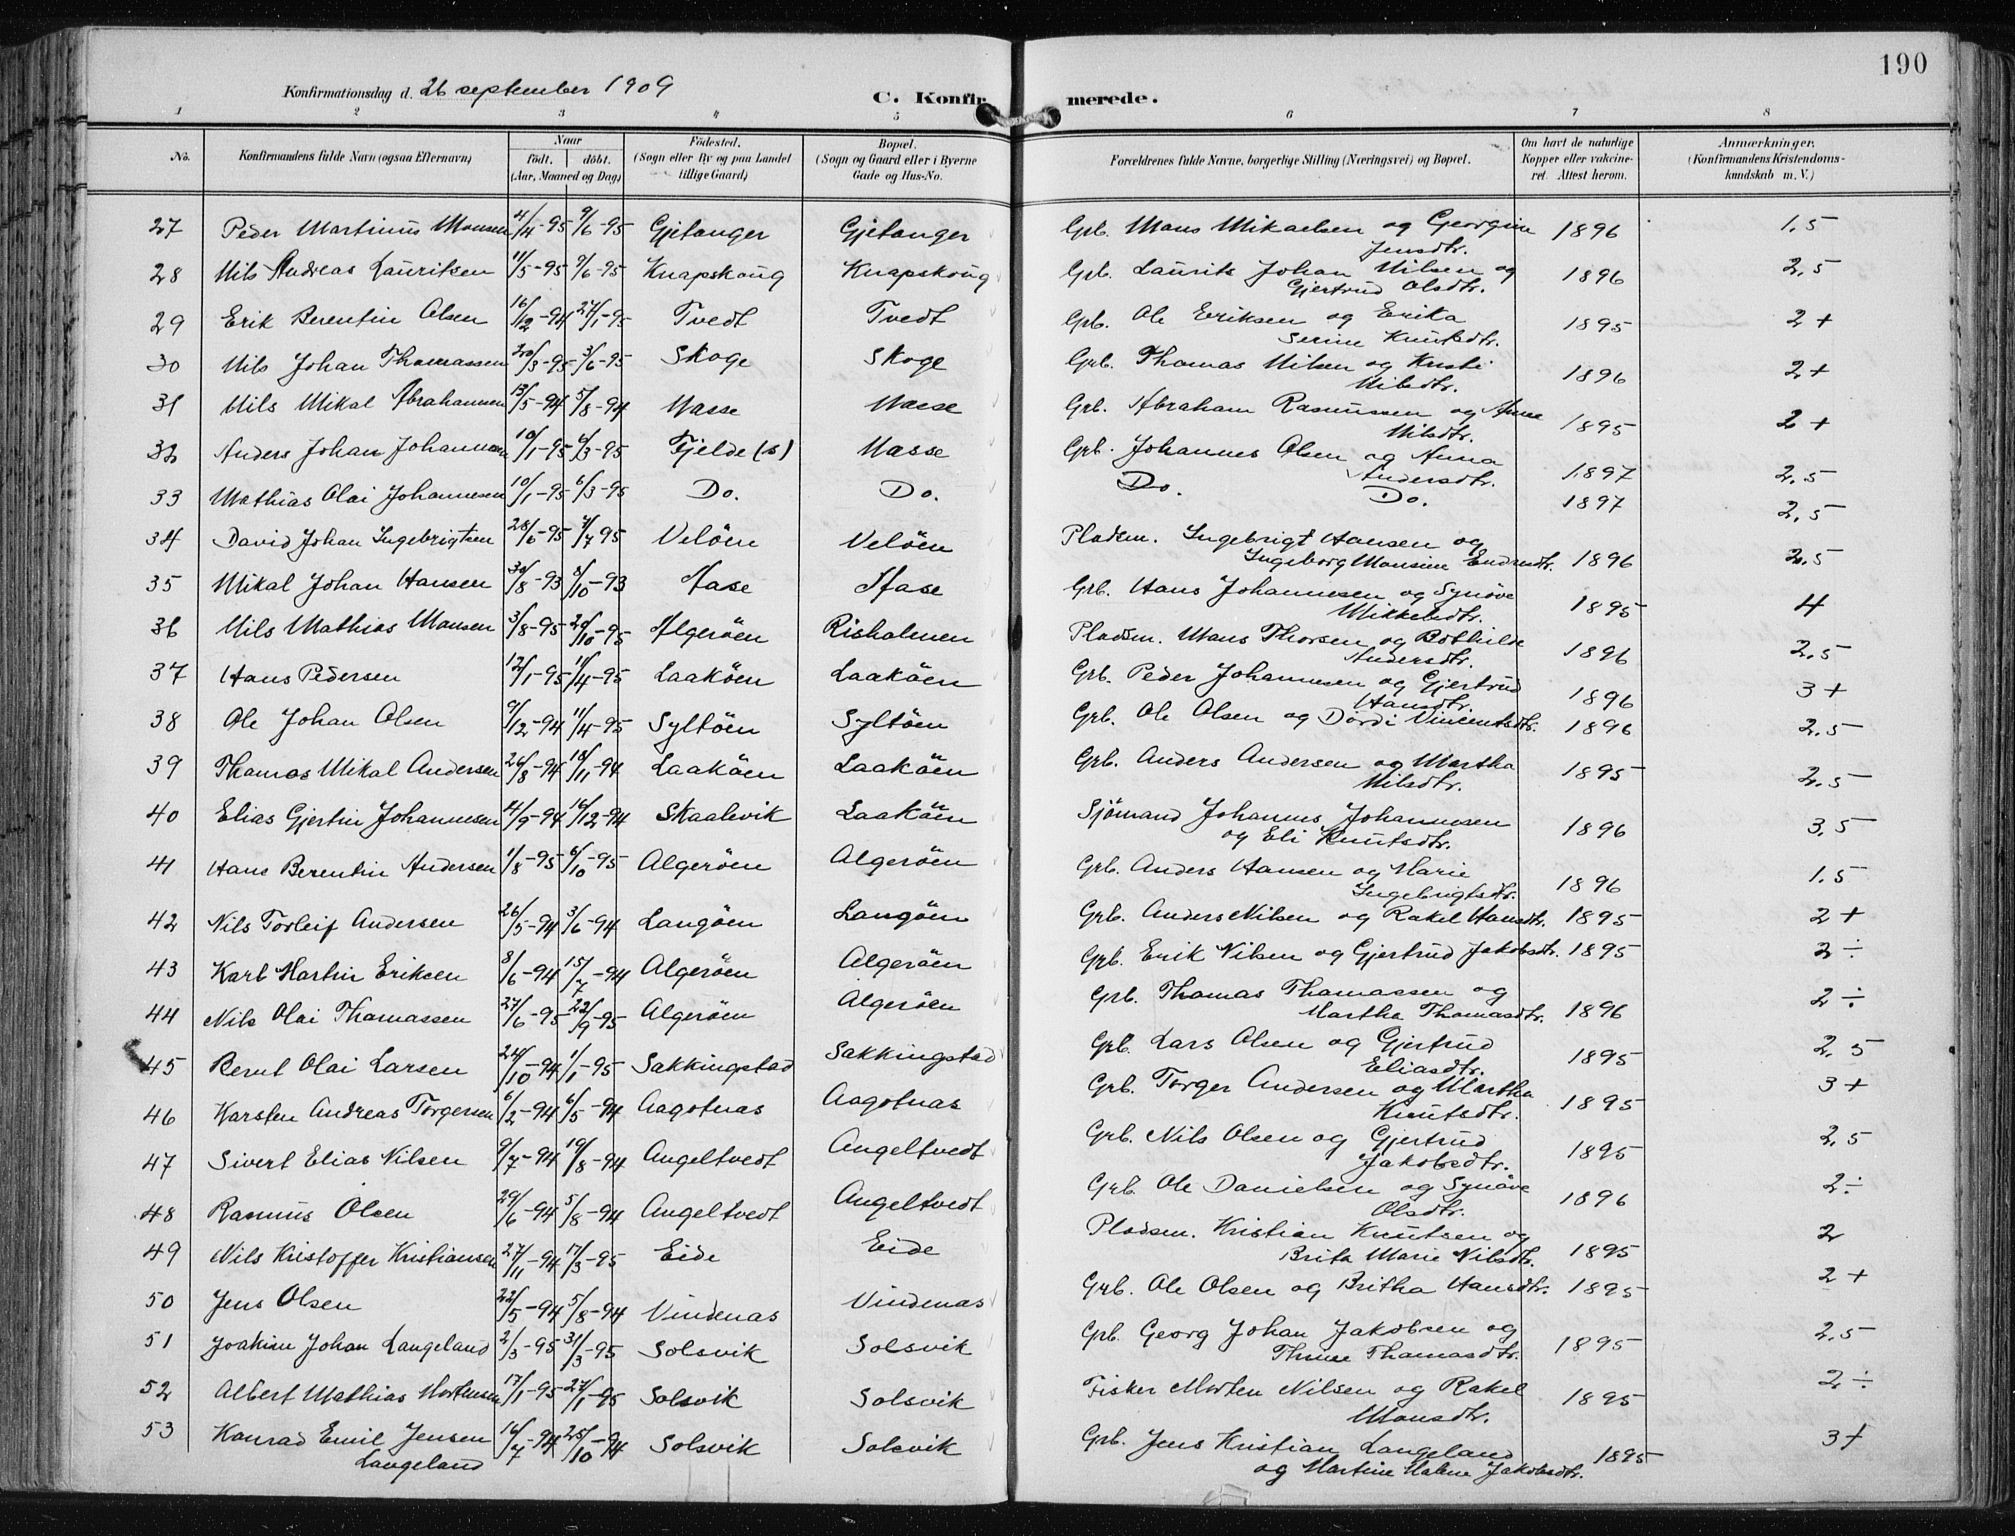 190
Konfirmationsdag d. 26 september 1909
C. Konfirmerede.
1 2 3 4 5 6 7 8
No. Konfirmandens fulde Navn (ogsaa Efternavn) Naar født. døbt. (Aar, Maaned og Dag) Födested. (Sogn eller By og paa Landet tillige Gaard) Bopæl. (Sogn og Gaard eller i Byerne Gade og Hus-No. Forældrenes fulde Navne, borgerlige Stilling (Næringsvei) og Bopæl. Om havt de naturlige Kopper eller vakcineret. Attest herom. Anmærkninger. (Konfirmandens Kristendomskundskab m. V.)
27 Peder Martinus Monsen 4/4-95 9/6-95 Gjetanger Gjetanger Grb. Mons Mikaelsen og Georgine Jensdtr. 1896 1.5
28 Nils Andreas Lauritsen 11/5-95 9/6-95 Knapskoug Knapskoug Grb. Laurits Johan Nilsen og Gjertrud Olsdtr. 1896 2,5
29 Erik Berentin Olsen 16/12-94 27/1-95 Tvedt Tvedt Grb. Ole Eriksen og Erika Serine Knutsdtr. 1895 2+
30 Nils Johan Thomassen 20/3-95 3/6-95 Skoge Skoge Grb. Thomas Nilsen og Kristi Nilsdtr. 1896 2+
31 Nils Mikal Abrahamsen 13/5-94 5/8-94 Næsse Næsse Grb. Abraham Rasmussen og Anne Nilsdtr. 1895 2+
32 Anders Johan Johannesen 10/1-95 6/3-95 Fjelde (s) Næsse Grb. Johannes Olsen og Anna Andersdtr. 1897 2,5
33 Mathias Olai Johannesen 10/1-95 6/3-95 Do. Do. Do. Do. 1897 2,5
34 David Johan Ingebrigtsen 28/6-95 7/7 95 Velöen Velöen Pladsm. Ingebrigt Hansen og Ingeborg Monsine Endresdtr. 1896 2,5
35 Mikal Johan Hansen 30/8-93 8/10-93 Aase Aase Grb. Hans Johannesen og Synöve Mikkelsdtr. 1895 4
36 Nils Mathias Monsen 3/8-95 20/10-95 Algeröen Risholmen Pladsm. Mons Thorsen og Bothilde Andersdtr. 1896 2,5
37 Hans Pedersen 12/1-95 11/4-95 Laaköen Laaköen Grb. Peder Johannesen og Gjertrud Hansdtr. 1896 3+
38 Ole Johan Olsen 9/12-94 11/4-95 Syltöen Syltöen Grb. Ole Olsen og Dordi Vincentsdtr. 1896 2,5
39 Thomas Mikal Andersen 26/8-94 18/11-94 Laaköen Laaköen Grb. Anders Andersen og Martha Nilsdtr. 1895 2,5
40 Elias Gjertin Johannesen 4/9-94 16/12-94 Skaalevik Laaköen Sjömand Johannes Johannesen og Eli Knutsdtr. 1896 3,5
41 Hans Berentin Andersen 1/8-95 6/10-95 Algeröen Algeröen Grb. Anders Hansen og Marie Ingebrigtsdtr. 1896 1.5
42 Nils Torleif Andersen 26/5-94 3/6-94 Langöen Langöen Grb. Anders Nilsen og Rakel Hansdtr. 1895 2+
43 Karl Martin Eriksen 8/6-94 15/7-94 Algeröen Algeröen Grb. Erik Nilsen og Gjertrud Jakobsdtr. 1895 2÷
44 Nils Olai Thomassen 27/6-95 22/9-95 Algeröen Algeröen Grb. Thomas Thomassen og Martha Thomasdtr. 1896 2÷
45 Bernt Olai Larsen 24/10-94 1/1-95 Sakkingstad Sakkingstad Grb. Lars Olsen og Gjertrud Eliasdtr. 1895 2,5
46 Karsten Andreas Torgersen 6/2-94 6/5-94 Aagotnæs Aagotnæs Grb. Torger Andersen og Martha Knutsdtr. 1895 3+
47 Sivert Elias Nilsen 9/7-94 19/8-94 Angeltvedt Angeltvedt Grb. Nils Olsen og Gjertrud Jakobsdtr. 1895 2,5
48 Rasmus Olsen 29/6-94 5/8-94 Angeltvedt Angeltvedt Grb. Ole Danielsen og Synöve Olsdtr. 1896 2÷
49 Nils Kristoffer Kristiansen 27/11-94 17/3-95 Eide Eide Pladsm. Kristian Knutsen og Brita Marie Nilsdtr. 1895 2
50 Jens Olsen 22/5-94 5/8-94 Vindenæs Vindenæs Grb. Ole Olsen og Britha Hansdtr. 1895 2+
51 Joakim Johan Langeland 2/3-95 31/3-95 Solsvik Solsvik Grb. Georg Johan Jakobsen og Thrine Thomasdtr. 1895 2,5
52 Albert Mathias Mortensen 17/1-95 27/1-95 Solsvik Solsvik Fisker Morten Nilsen og Rakel Monsdtr. 1895 2,÷
53 Konrad Emil Jensen Langeland 16/7-94 25/10-94 Solsvik Solsvik Grb. Jens Kristian Langeland og Martine Malene Jakobsdtr. 1895 3+